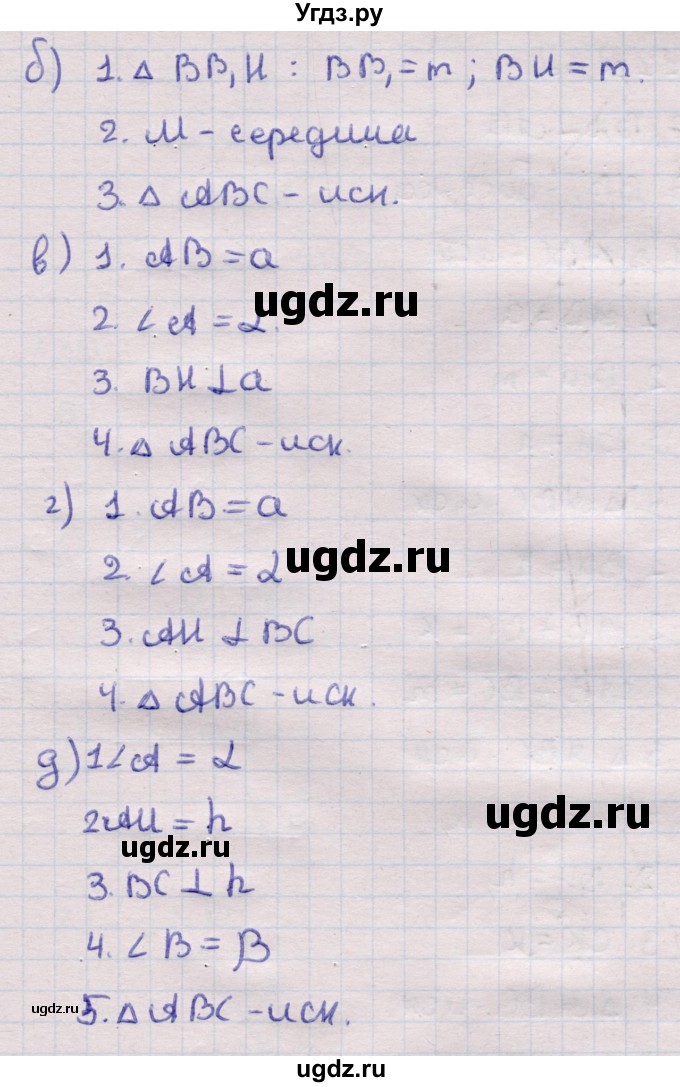 Угдз.ру
б) 1. △ BB₁H : BB₁ = m ; BH = m.
2. M - середина
3. △ ABC - иск.
в) 1. AB = a
ugdz.ru
2. ∠A = α.
3. BH ⊥ a
4. △ ABC - иск.
г) 1. AB = a
ugdz.ru
2. ∠A = α
3. AH ⊥ BC
4. △ ABC - иск.
д) 1 ∠A = α
2 AH = h
ugdz.ru
ugdz.ru
3. BC ⊥ h
4. ∠B = β
ugdz.ru
5. △ ABC - иск.
ugdz.ru